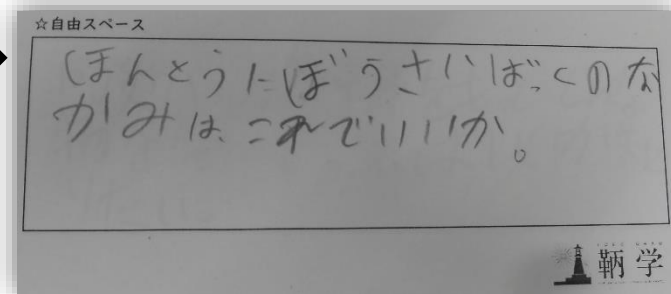 ☆自由スペース
ほんとうにぼうさいばっくのな
かみは、これでいいか。
鞆学